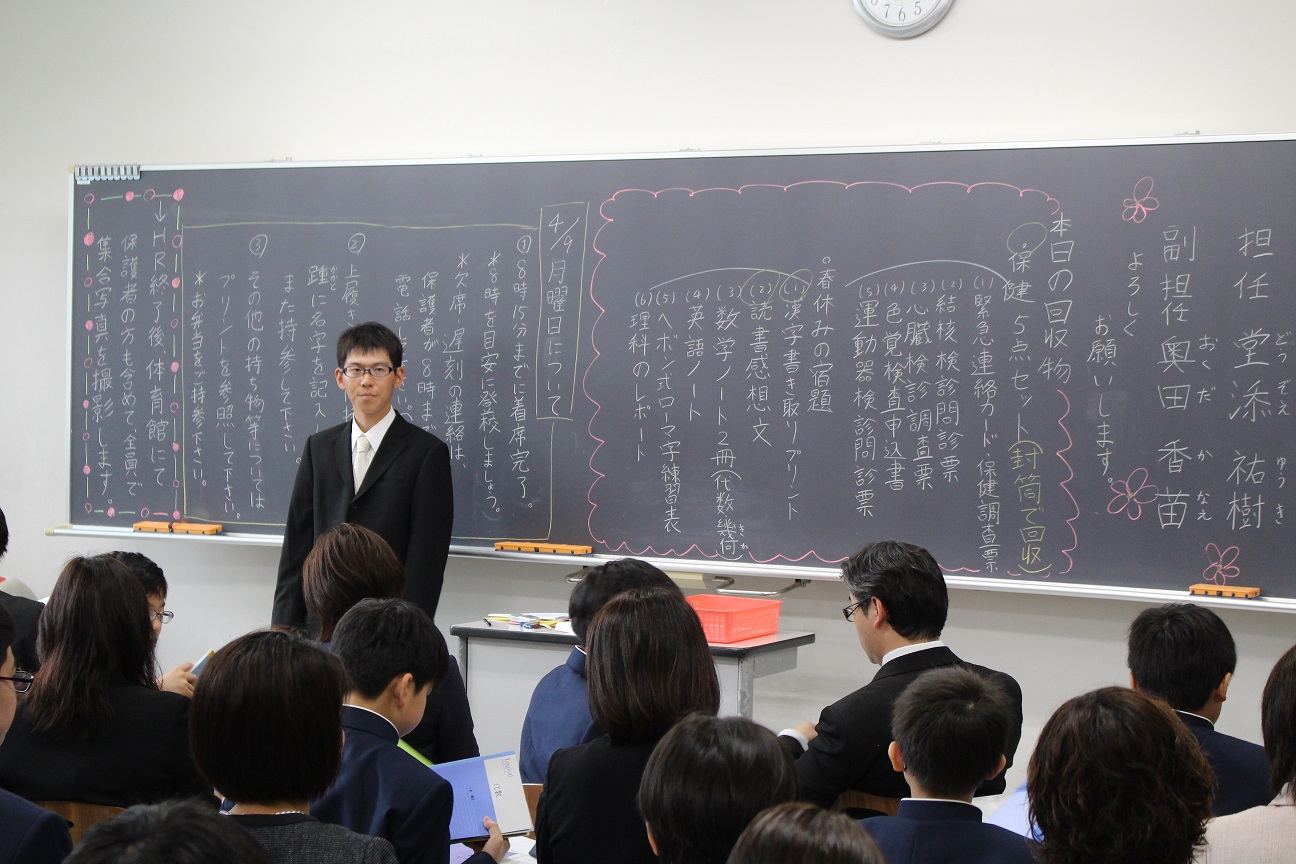 担任 堂添 祐樹
どうぞえ ゆうき
副担任 奥田 香苗
おくだ かなえ
よろしく
お願いします。
本日の回収物
・保健5点セット(封筒で回収)
(1)緊急連絡カード・保健調査票
(2)結核検診問診票
(3)心臓検診調査票
(4)色覚検査申込書
(5)運動器検診問診票
○春休みの宿題
(1)漢字書き取りプリント
(2)読書感想文
(3)数学ノート2冊(代数幾何)
きか
(4)英語ノート
(5)ヘボン式ローマ字練習表
(6)理科のレポート
4/9月曜日について
①8時15分までに着席完了。
*8時を目安に登校しましょう。
*欠席、遅刻の連絡は、
保護者が8時まで
電話し
②上履き
踵に名字を記入し
かかと
また持参して下さい。
③その他の持ち物等については
プリントを参照して下さい。
*お弁当をご持参下さい。
→HR終了後、体育館にて
保護者の方も含めて、全員で
集合写真を撮影します。
7 6 5
代数